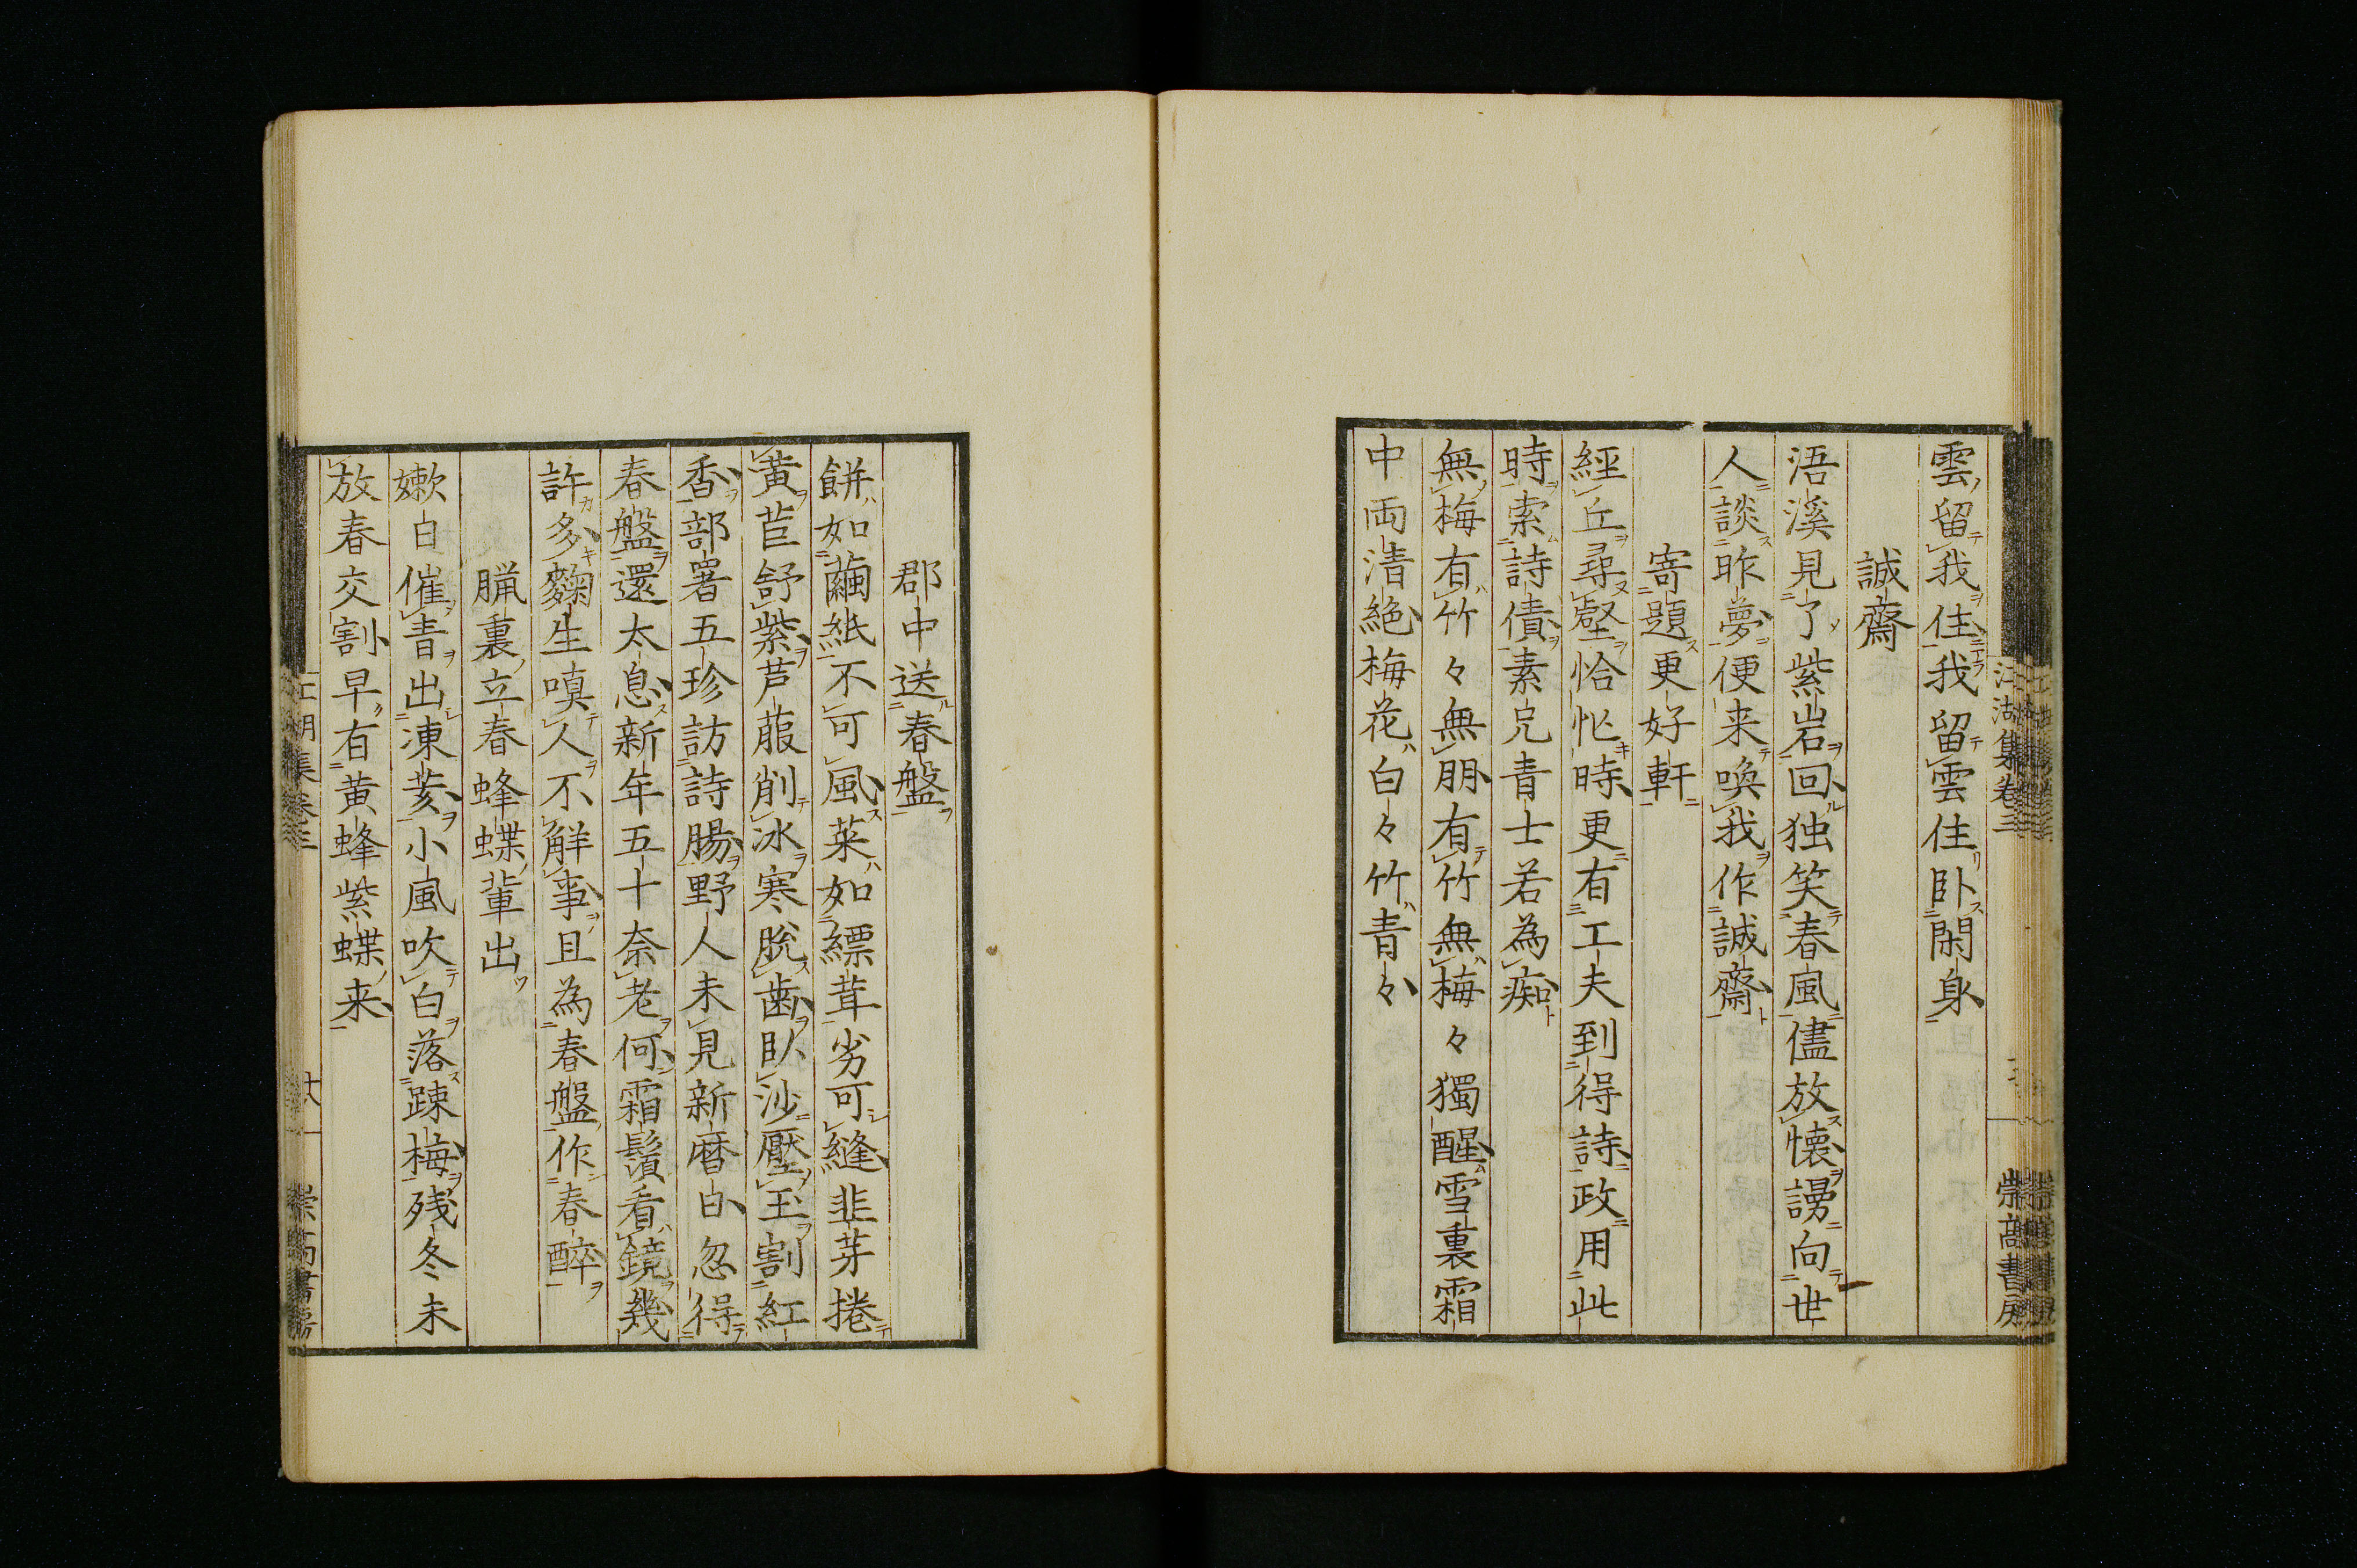 雲留我住我留雲住卧閑身
誠齋
浯溪見了紫岩回独笑春風儘放懐謾向世
人談昨夢便来喚我作誠齋
寄題更好軒
經丘尋壑恰忙時更有工夫到得詩政用此
時索詩債素兄青士若為痴
無梅有竹々無朋有竹無梅々獨醒雪裏霜
中両清絶梅花白々竹青々
江湖集巻三
崇高書房
郡中送春盤
餅如繭紙不可風菜如縹茸劣可縫韭芽捲
黄苣舒紫芦菔削冰寒脱歯臥沙壓玉割紅
香部署五珍訪詩腸野人未見新暦日忽得
春盤還太息新年五十奈老何霜鬚看鏡幾
許多麹生嗔人不解事且為春盤作春醉
臘裏立春蜂蝶輩出
嫰白催青出凍荄小風吹白落踈梅残冬未
放春交割早有黄蜂紫蝶来
江湖集巻三
六
崇高書房